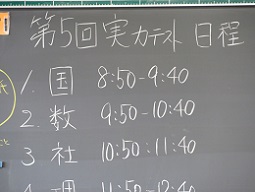 第5回実力テスト 日程
1. 国 8:50-9:40
2. 数 9:50-10:40
3 社 10:50-11:40